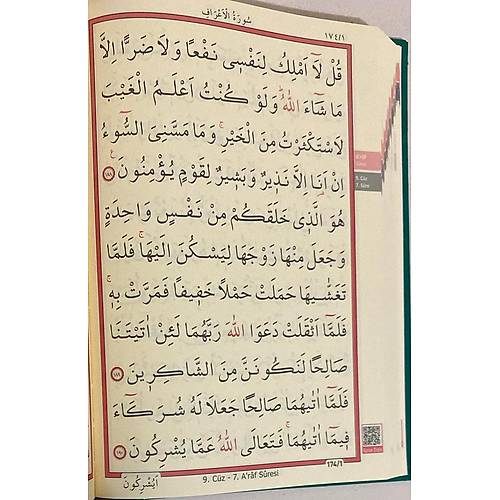 سُورَةُ الْاَعْرَافِ
١٧٤/١
قُلْ لَٓا اَمْلِكُ لِنَفْسٖي نَفْعًا وَلَا ضَرًّا اِلَّا
مَا شَٓاءَ اللّٰهُؕ وَلَوْ كُنْتُ اَعْلَمُ الْغَيْبَ
لَاسْتَكْثَرْتُ مِنَ الْخَيْرِۚ وَمَا مَسَّنِيَ السُّٓوءُ
اِنْ اَنَا۬ اِلَّا نَذٖيرٌ وَبَشٖيرٌ لِقَوْمٍ يُؤْمِنُونَ ۟ ﴿١٨٨﴾
هُوَ الَّذٖي خَلَقَكُمْ مِنْ نَفْسٍ وَاحِدَةٍ
وَجَعَلَ مِنْهَا زَوْجَهَا لِيَسْكُنَ اِلَيْهَاۚ فَلَمَّا
تَغَشّٰيهَا حَمَلَتْ حَمْلًا خَفٖيفًا فَمَرَّتْ بِهٖۚ
فَلَمَّٓا اَثْقَلَتْ دَعَوَا اللّٰهَ رَبَّهُمَا لَئِنْ اٰتَيْتَنَا
صَالِحًا لَنَكُونَنَّ مِنَ الشَّاكِرٖينَ ﴿١٨٩﴾
فَلَمَّٓا اٰتٰيهُمَا صَالِحًا جَعَلَا لَهُ شُرَكَٓاءَ
فٖيمَٓا اٰتٰيهُمَاۚ فَتَعَالَى اللّٰهُ عَمَّا يُشْرِكُونَ ﴿١٩٠﴾
174/1
اَيُشْرِكُونَ
9. Cüz - 7. A'râf Sûresi
A'râf
9. Cüz
7. Sûre